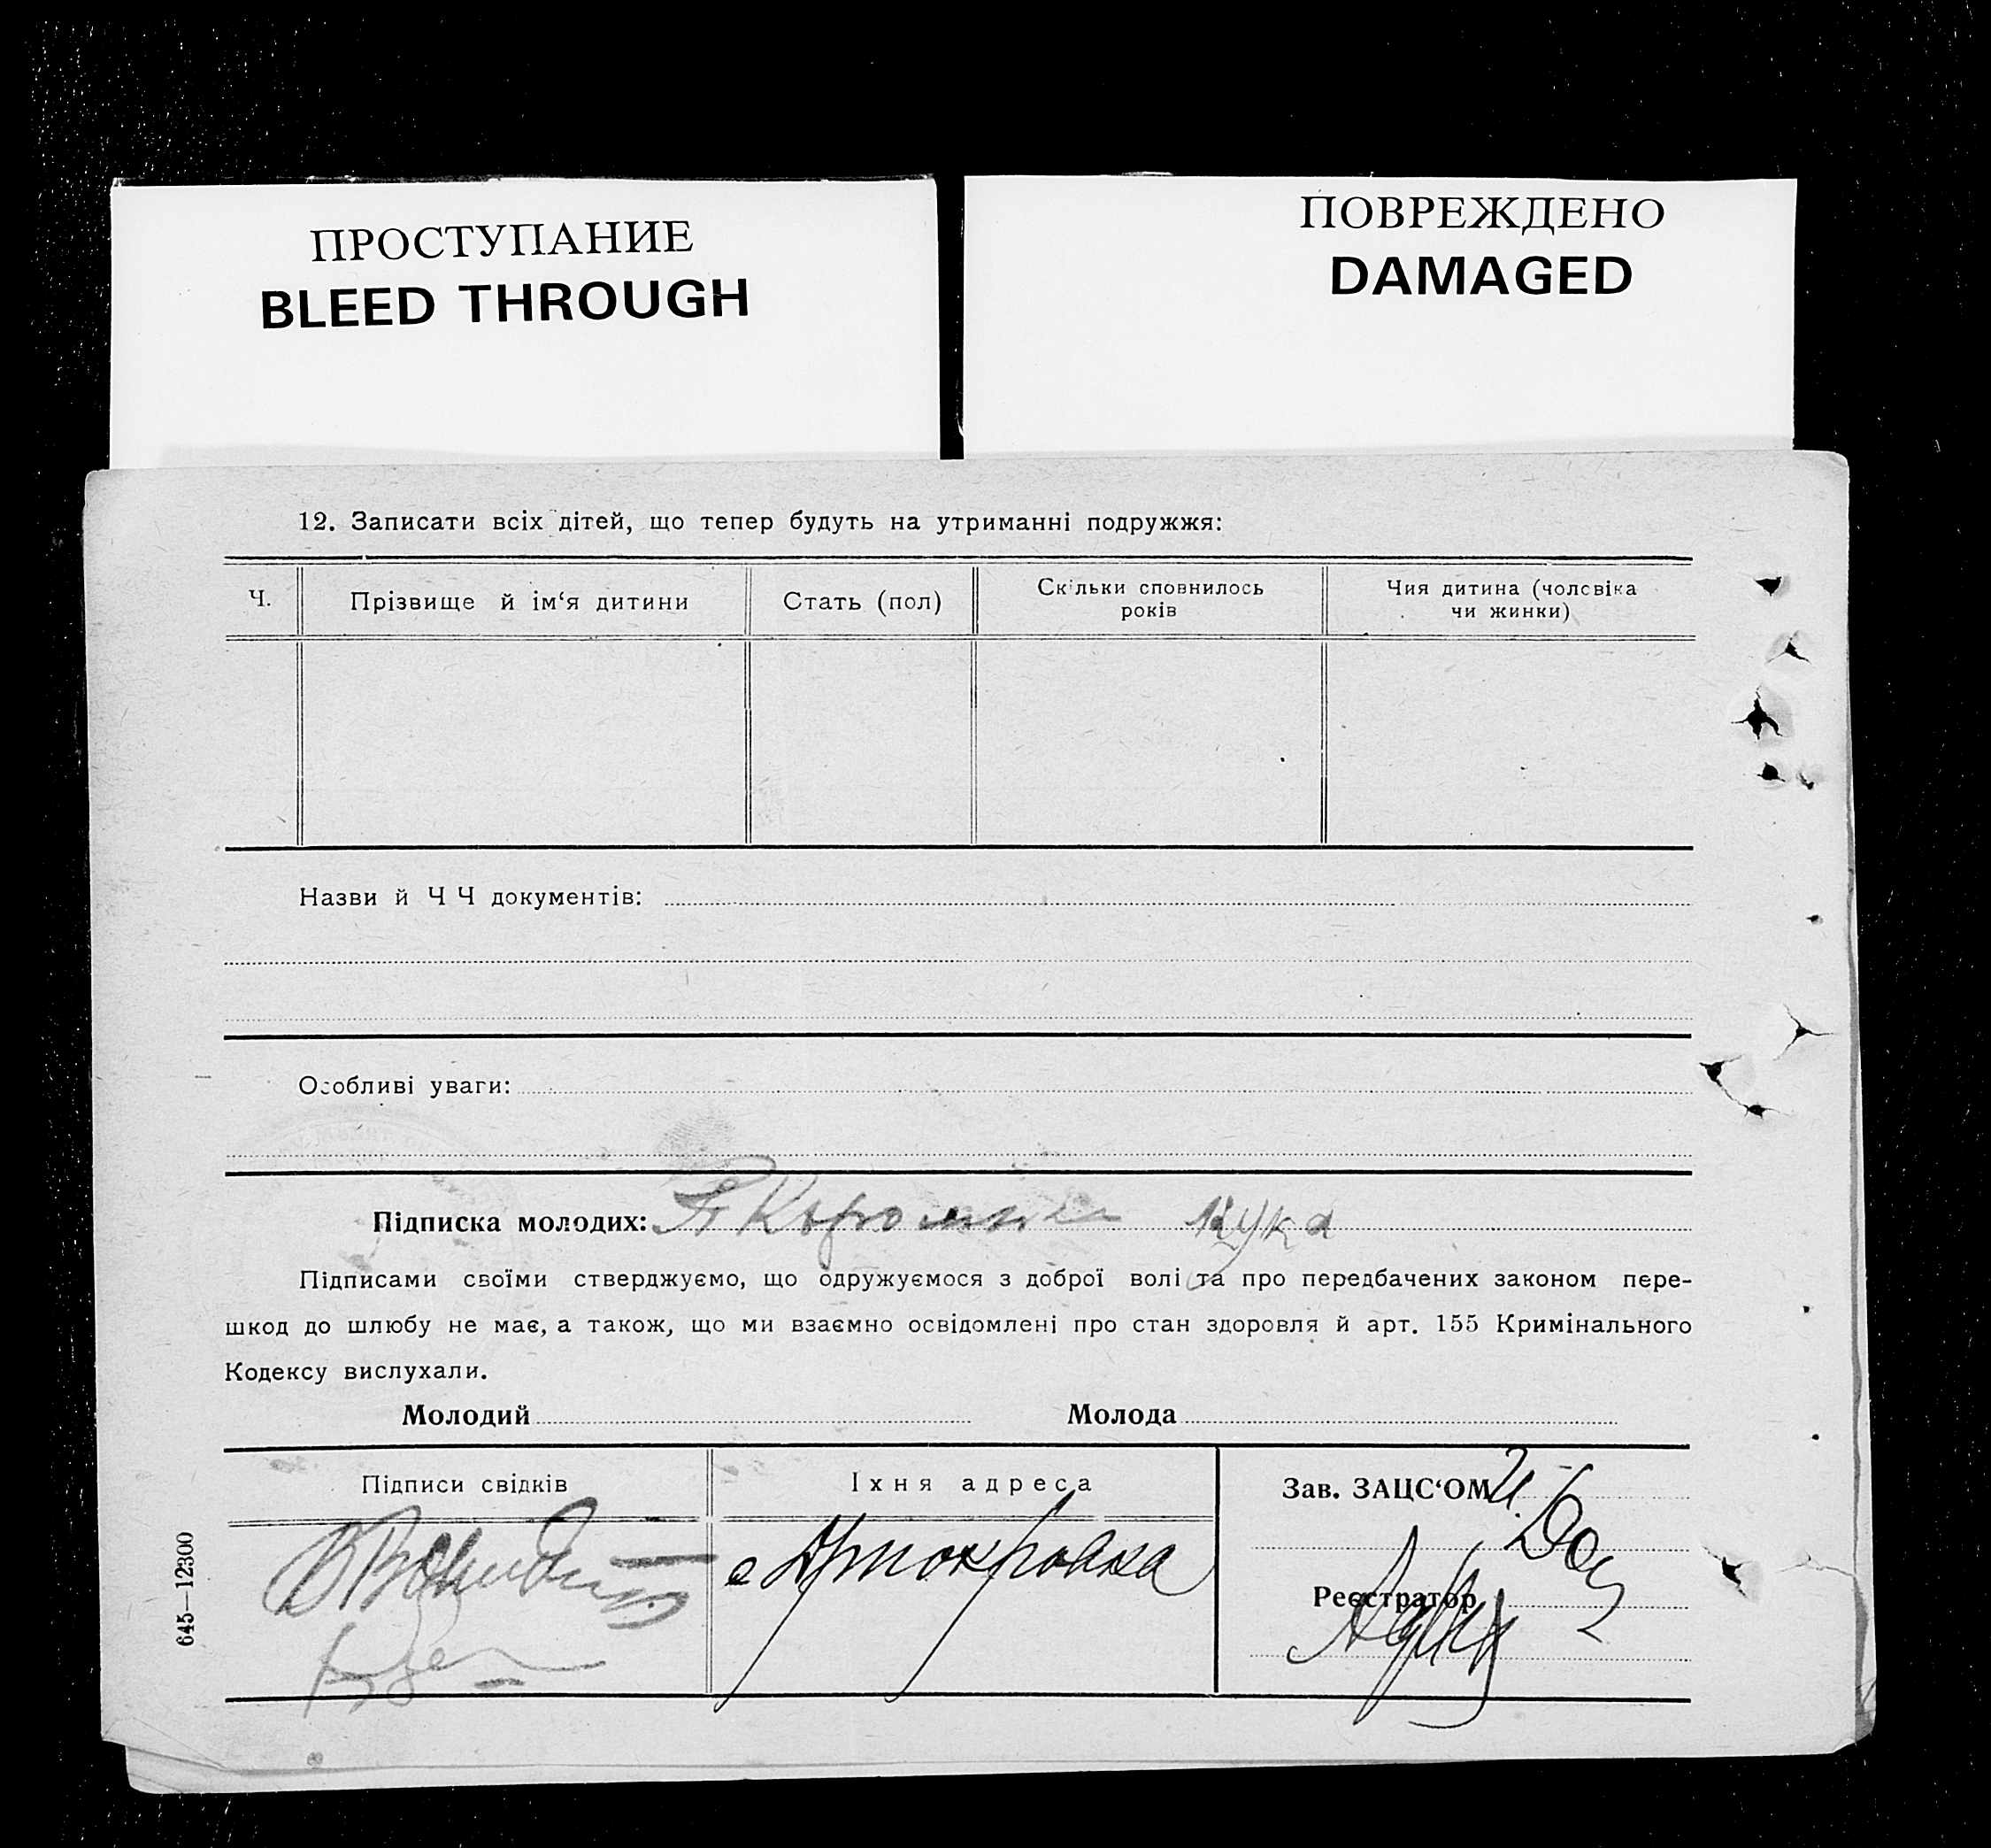 ПРОСТУПАНИЕ
BLEED THROUGH
ПОВРЕЖДЕНО
DAMAGED
12. Записати всіх дітей, що тепер будуть на утриманні подружжя:
Ч.
Прізвище й ім‘я дитини
Стать (пол)
Скільки сповнилось
років
Чия дитина (чоловіка
чи жинки)
Назви й Ч Ч документів:
Особливі уваги:
Підписка молодих:
Підписами своїми стверджуємо, що одружуємося з доброї волі та про передбачених законом пере-
шкод до шлюбу не має, а також, що ми взаємно освідомлені про стан здоровля й арт. 155 Кримінального
Кодексу вислухали.
Молодий
Молода
Підписи свідків
Їхня адреса
Зав. ЗАЦС‘ОМ
Реєстратор
645—12300